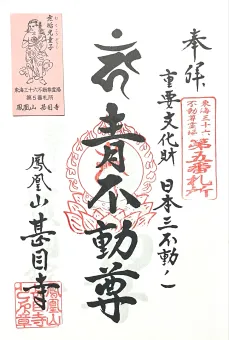 奉拝
重要文化財 日本三不動ノ一
東海三十六
不動尊霊場
第五番札所
青不動尊
鳳凰山 甚目寺
東海三十六不動尊霊場
第5番札所
鳳凰山 甚目寺